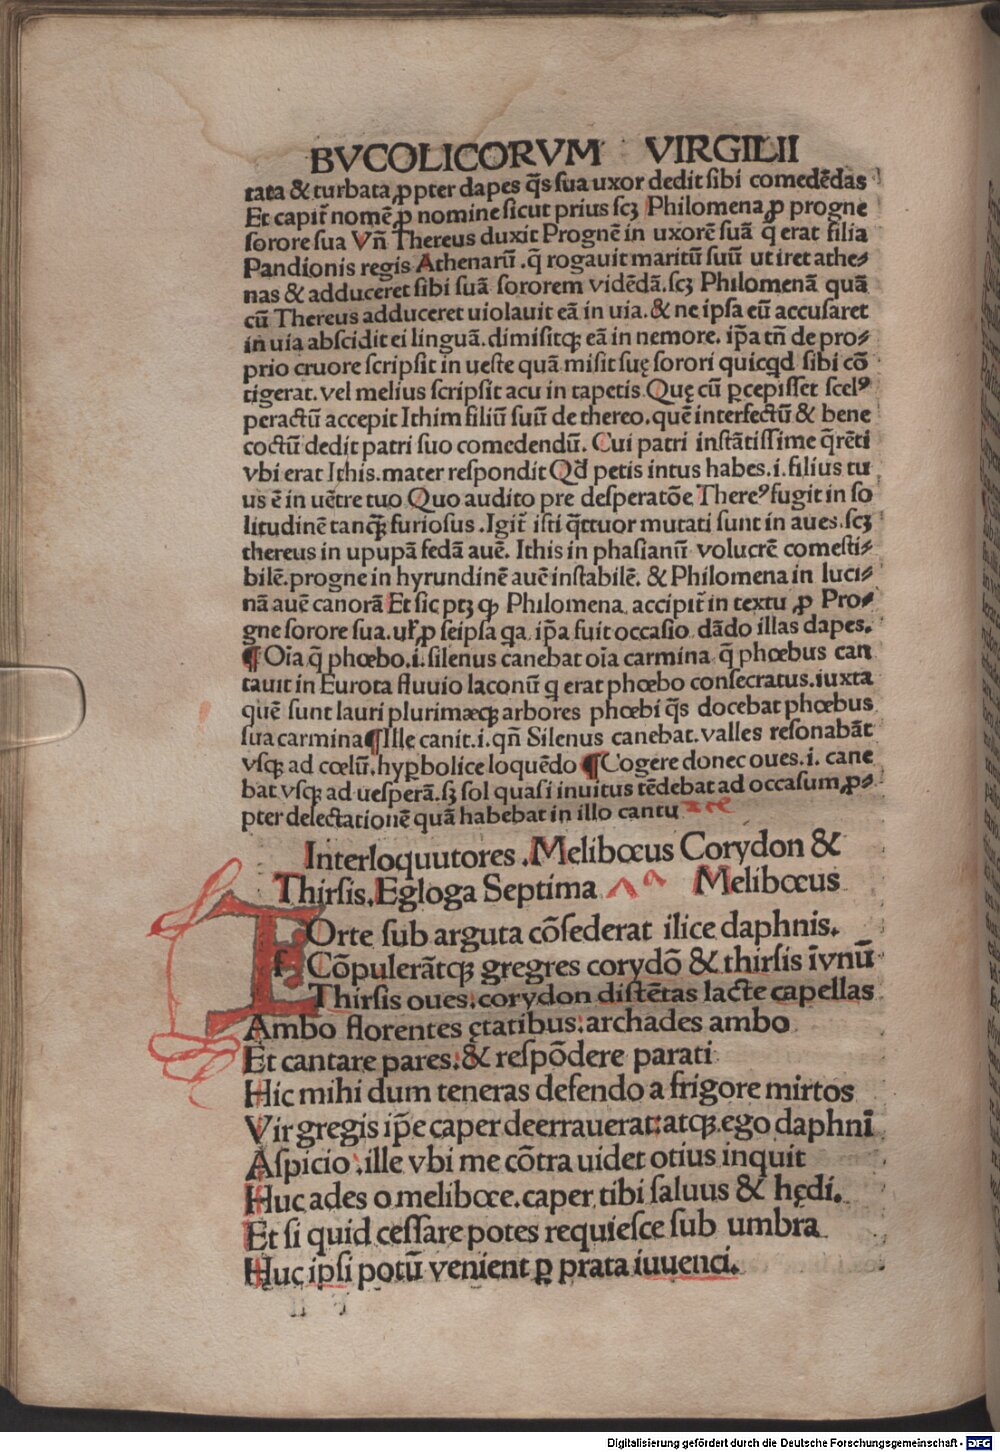 BVCOLICORVM VIRGILII
tata & turbata ꝓpter dapes q̄s sua uxor dedit sibi comedēdas
Et capit̄ nomē ꝓ nomine sicut prius scꝫ Philomena ꝓ progne
sorore sua Vn̄ Thereus duxit Prognē in uxorē suā q̄ erat filia
Pandionis regis Athenarū .q̄ rogauit maritū suū ut iret athe⸗
nas & adduceret sibi suā sororem vidēdā.scꝫ Philomenā quā
cū Thereus adduceret uiolauit eā in uia.& ne ipsa eū accusaret
in uia abscidit ei linguā.dimisitqꝫ eā in nemore. ip̄a tn̄ de pro⸗
prio cruore scripsit in ueste quā misit suę sorori quicqd sibi cō
tigerat. vel melius scripsit acu in tapetis Quę cū ꝑcepisset scelꝰ
peractū accepit Ithim filiū suū de thereo.quē interfectū & bene
coctū dedit patri suo comedendū. Cui patri instātissime q̄rēti
vbi erat Ithis.mater respondit Qd̄ petis intus habes.i.filius tu
us ē in uētre tuo Quo audito pre desperatōe Thereꝰ fugit in so
litudinē tanqꝫ̄ furiosus .Igit̄ isti q̄ttuor mutati sunt in aues.scꝫ
thereus in upupā fedā auē. Ithis in phasianū volucrē comesti⸗
bilē.progne in hyrundinē auē instabilē. & Philomena in luci⸗
nā auē canorā Et sic ptꝫ ꝙ Philomena accipit̄ in textu ꝓ Pro⸗
gne sorore sua.ul̄ ꝓ seipsa qa ip̄a fuit occasio dādo illas dapes.
¶ Oīa q̄ phœbo.i.silenus canebat oīa carmina q̄ phœbus can
tauit in Eurota fluuio laconū q erat phœbo consecratus.iuxta
quē sunt lauri plurimæqꝫ arbores phœbi q̄s docebat phœbus
sua carmina ¶ Ille canit.i.qn̄ Silenus canebat.valles resonabāt
vsqꝫ ad cœlū.hyꝑbolice loquēdo ¶ Cogere donec oues.i. cane
bat vsqꝫ ad uesperā.sꝫ sol quasi inuitus tēdebat ad occasum ꝓ⸗
pter delectationē quā habebat in illo cantu
Interloquutores .Melibœus Corydon &
Thirsis.Egloga Septima Melibœus
FOrte sub arguta cōsederat ilice daphnis.
Cōpulerātqꝫ gregres corydō & thirsis īvnū
Thirsis oues.corydon distētas lacte capellas
Ambo florentes ętatibus:archades ambo
Et cantare pares:& respōdere parati
Hic mihi dum teneras defendo a frigore mirtos
Vir gregis ip̄e caper deerrauerat:atqꝫ ego daphnī
Aspicio .ille vbi me cōtra uidet otius inquit
Huc ades o melibœe.caper tibi saluus & hędi.
Et si quid cessare potes requiesce sub umbra
Huc ipsi potū venient ꝑ prata iuuenci.
Digitalisierung gefördert durch die Deutsche Forschungsgemeinschaft - DFG